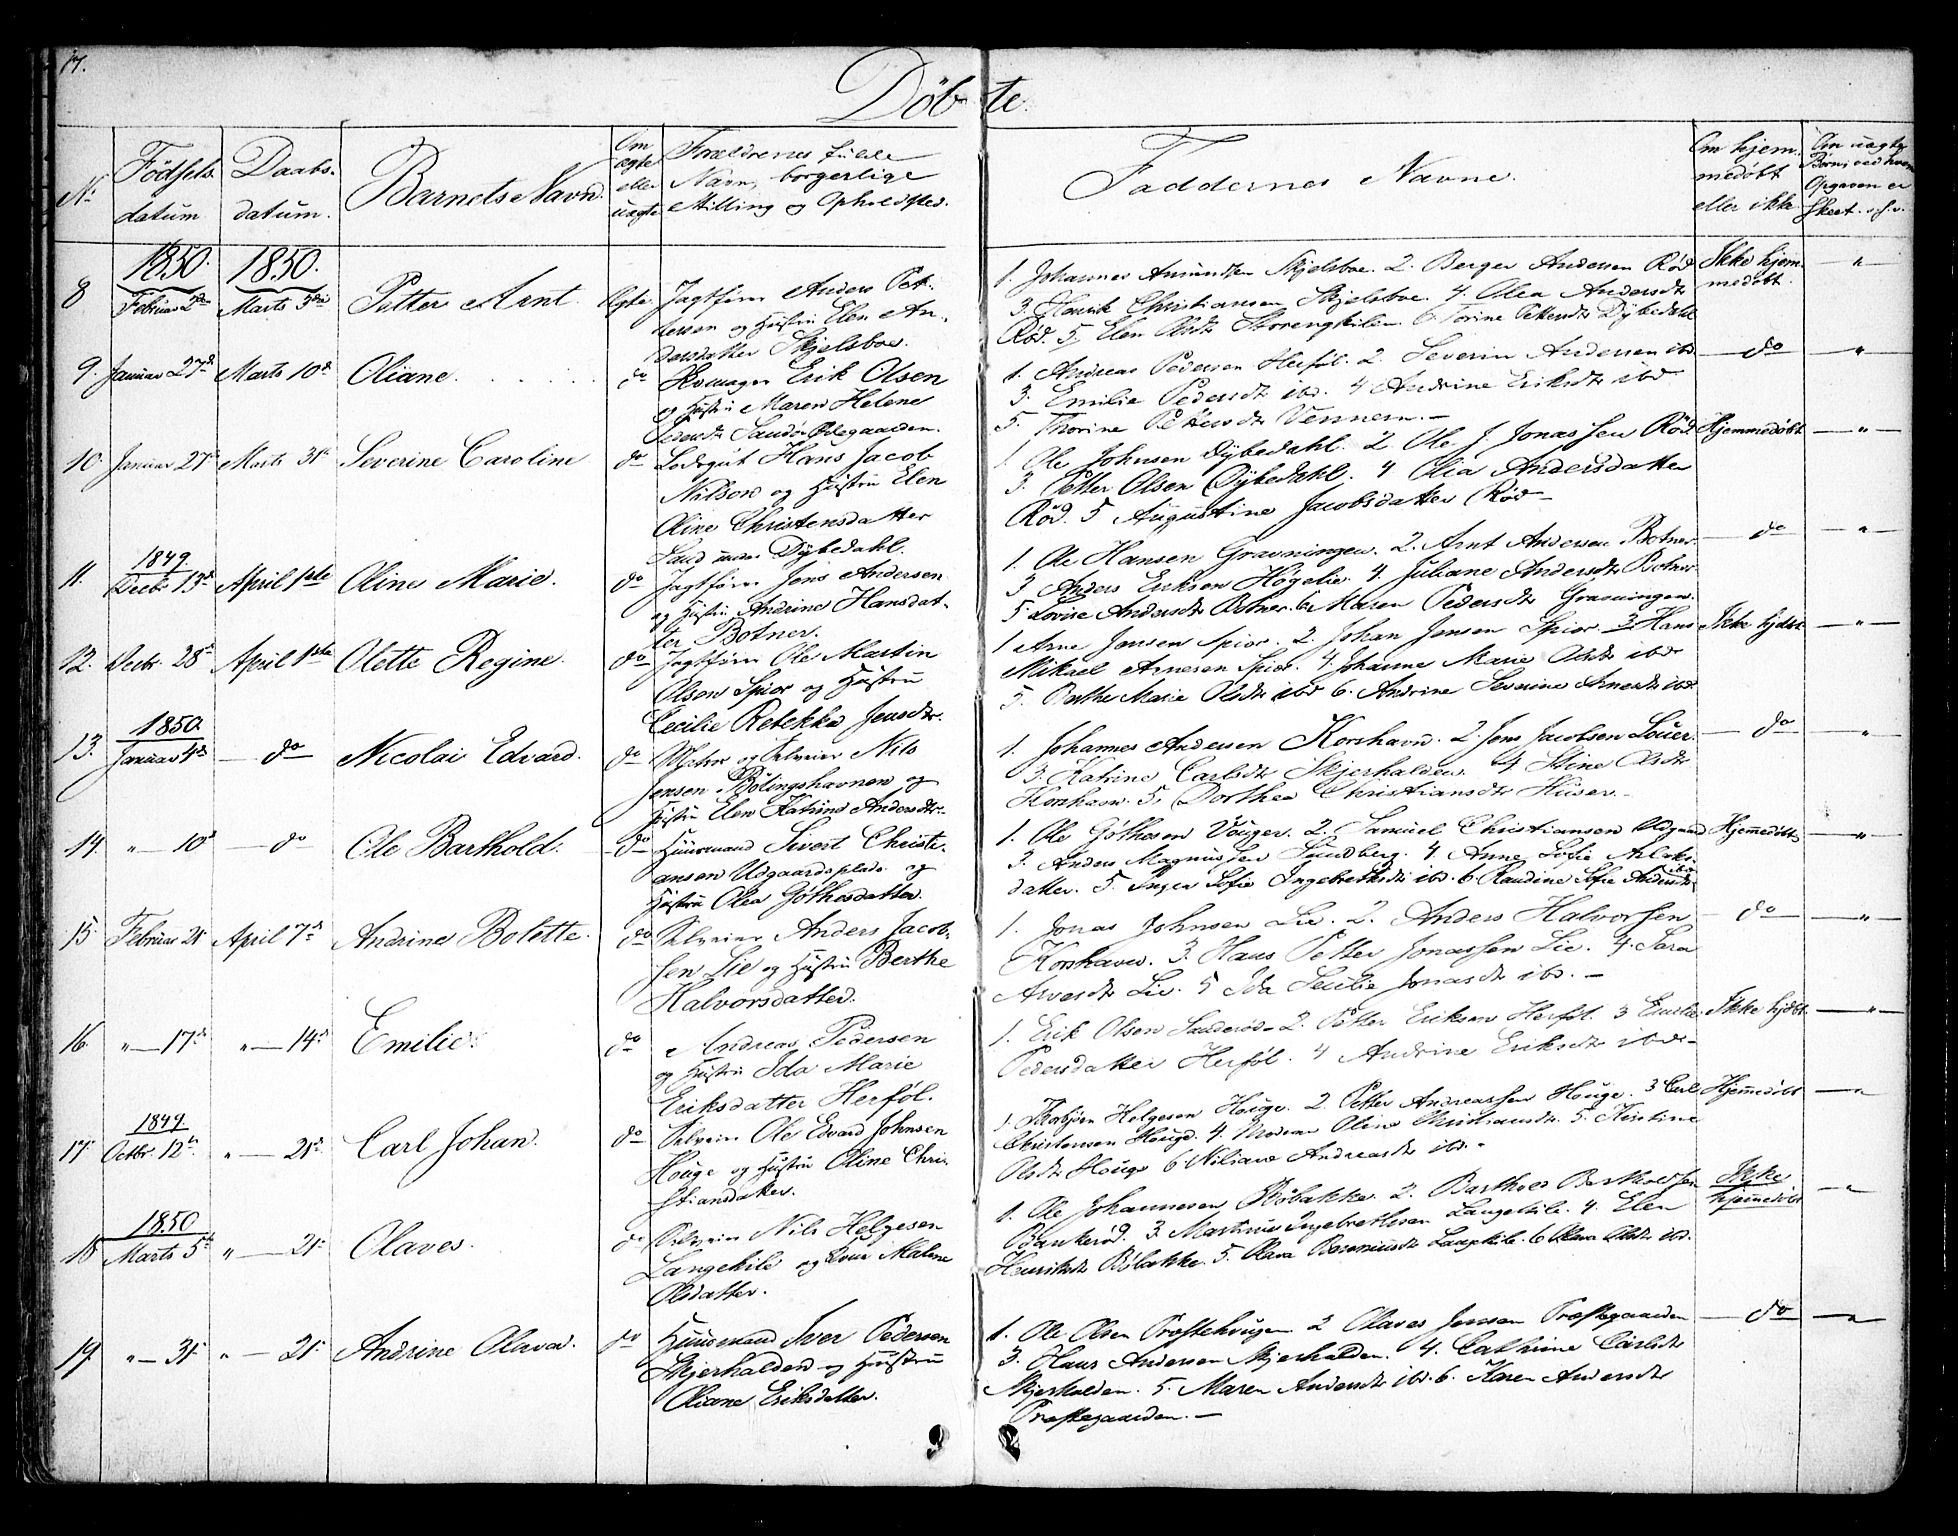 17.
Döbte.
No
Födsels datum
Daabs- datum.
Barnets Navn.
Om ægte eller uægte
Forældrenes fulde Navn, borgerlige Stilling og Opholdsted.
Faddernes Navne.
Om hjem- medöbt eller ikke.
Om uægte Börn, ved hvem Opgaven er skeet. o.s.v.
1850. 1850.
8 Februar 2den Marts 3die Petter Arnt. Ægte. Jagtförer Anders Pet-
tersen og Hustru Elen An-
dersdatter Skjelsboe.
1. Johannes Amundsen Skjelsboe. 2. Berger Andersen Röd
3. Henrik Christiansen Skjelsboe. 4. Olea Andersdtr
Röd. 5. Elen Olsdtr Storengkilen. 6 Torine Pettersdtr Dybedahl
Ikke hjem-
medöbt. "
9. Januar 27d Marts 10d Oliane. do Erik Olsen
og Hustru Maren Helene
Pedersdtr Sandö Ödegaarden.
1. Andreas Pedersen Herföl. 2. Severin Andersen ibd
3. Emilie Pedersdtr ibd. 4 Andrine Eriksdtr ibd
5. Thorine Pettersdtr
do "
10. Januar 27d Marts 31te Severine Caroline do Lodsgut Hans Jacob
Nilsen og Hustru Elen
Oline Christensdatter
Sand under Dybedahl.
1. Ole Johnsen Dybedahl. 2 Ole J. Jonassen Röd.
3. Petter Olsen Dybedahl. 4 Olia Andersdatter
Röd. 5 Augustine Jacobsdatter Röd
Hjemmedöbt "
1849
11. Decbr 13d April 1ste Oline Marie. do Jagtförer Jens Andersen
og Hustru Andrine Hansdat-
ter Botner.
1. Ole Hansen Gravningen. 2. Arnt Andersen Botner.
3 Anders Eriksen Högelie. 4. Juliane Andersdtr Botner
5 Lovise Andersdtr Botner. 6. Maren Pedersdtr Gravningen.
do "
12. Decbr. 28d April 1ste Olette Regine. do Jagtförer Ole Martin
Olsen Spior og Hustru
Cecilie Rebekka Jensdtr.
1 Arne Jensen Spior. 2. Johan Jensen Spior. 3. Hans
Mikael Arnesen Spior. 4. Johanne Marie Olsdtr ibd
5. Berthe Marie Olsdtr ibd 6. Andrine Severine Arnesdtr ibd.
Ikke hjdbt "
1850.
13. Januar 4de do Nicolai Edvard. do og Selveier Nils
Jensen Bölingshavnen og
Hustru Elen Katrine Andersdtr.
1. Johannes Andersen Korshavn. 2. Jens Jacobsen Löuer.
3. Katrine Carlsdtr Skjerhalden. 4 Stine Olsdtr
Korshavn. 5. Dorthea Christiansdtr Huser.
do "
14. " 10d do Ole Barthold. do Huusmand Sivert Christi-
ansen Udgaardsplads og
Hustru Olea Göthesdatter.
1. Ole Göthesen Vouger. 2. Samuel Christiansen Udgaard
3. Anders Magnussen Sundberg. 4. Anne Sofie Aslaks-
datter. 5. Inger Sofie Ingebrethsdtr ibd. 6. Randine Sofie Andersdtr ibd
Hjemmedöbt "
15 Februar 2d April 7d Andrine Bolette. do Selveier Anders Jacob-
sen Lie og Hustru Berthe
Halvorsdatter.
1. Jonas Johnsen Lie. 2. Anders Halvorsen
Korshavn. 3. Hans Petter Jonassen Lie. 4. Sara
Arvesdtr Lie. 5 Ida Secilie Jonasdtr ibd.
do "
16 " 17d " 14d Emilie. do Andreas Pedersen
og Hustru Ida Marie
Eriksdatter Herföl.
1. Erik Olsen Sanderöd 2. Petter Eriksen Herföl. 3 Emilie
Pedersdatter Herföl. 4 Andrine Eriksdtr ibd
Ikke hjdbt. "
1849.
17. Octbr. 12te " 21d Carl Johan. do Selveier Ole Edvard Johnsen
Houge og Hustru Oline Chri-
stiansdatter.
1. Thorbjörn Helgesen Houge. 2. Petter Andreassen Houge. 3 Carl
Christensen Houge. 4. Moderen Oline Christiansdtr. 5. Kirstine
Olsdtr Houge 6 Niliane Andreasdtr ibd.
Hjemmedöbt "
1850
18 Marts 5te " 21. Olaves. do Selveier Nils Helgesen
Langekile og Malene
Olsdatter.
1. Ole Johannesen Bölakke. 2. Barthold Bartholdsen
Bankeröd. 3. Martinus Ingebrethsen Langekile. 4. Elen
Henriksdtr Bölakke. 5. Olava Langekile. 6 Olava Olsdtr ibd.
Ikke
hjemmedöbt "
19. " 31. " 21. Andrine Olava. do Huusmand Iver Pedersen
Skjerhalden og Hustru
Oliane Eriksdatter.
1. Ole Olsen Prestehougen 2 Olaves Jensen Præstegaarden
3. Hans Andersen Skjerhalden. 4. Cathrine Carlsdtr
Skjerhalden. 5. Maren Andersdtr ibd. 6. Karen Andersdtr
Præstegaarden.
do "